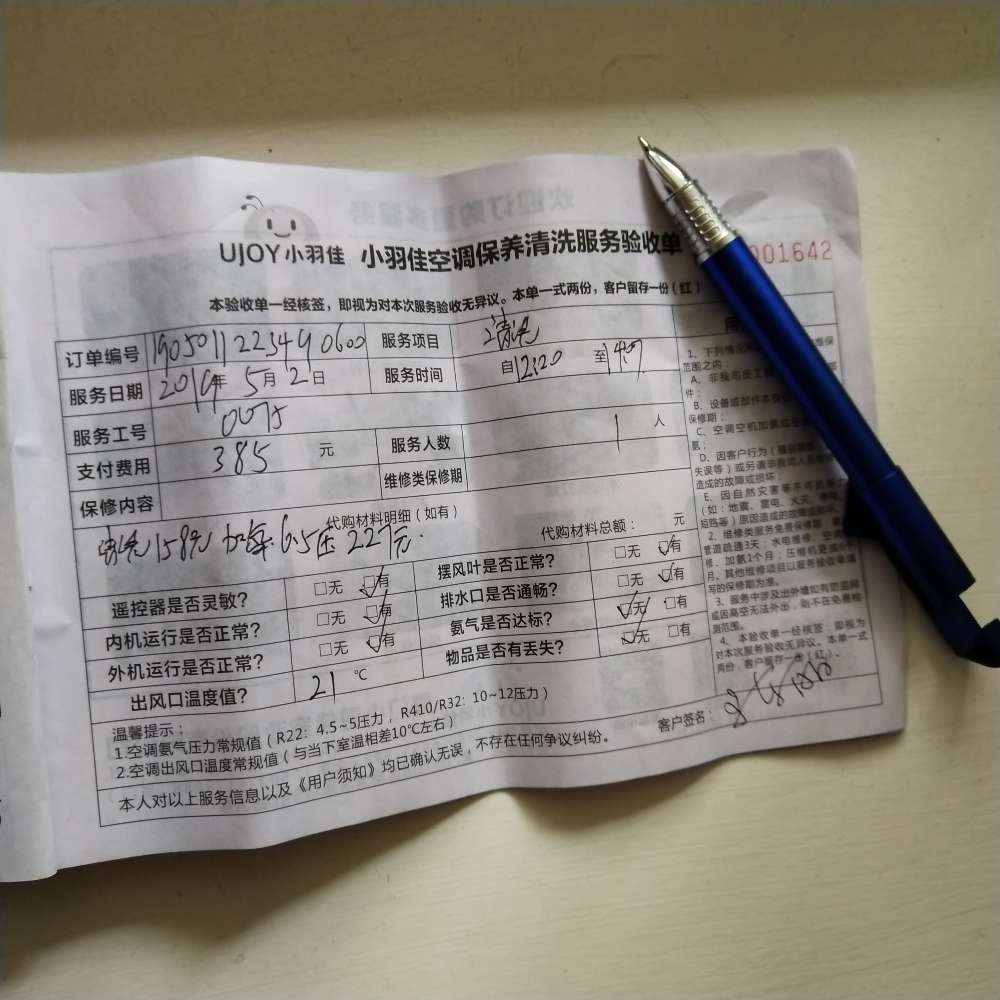 UJOY小羽佳 小羽佳空调保养清洗服务验收单
001642
本验收单一经核签，即视为对本次服务验收无异议。本单一式两份，客户留存一份（红）
订单编号 190501122349 0600 服务项目 清洗
服务日期 2019年 5月 2日 服务时间 自12:20 至14:09
服务工号 0075
支付费用 385 元 服务人数 1 人
保修内容 维修类保修期
代购材料明细（如有） 代购材料总额： 元
清洗158元 加氟 6.5压 227元.
遥控器是否灵敏？ □无 □有 摆风叶是否正常？ □无 □有
内机运行是否正常？ □无 □有 排水口是否通畅？ □无 □有
外机运行是否正常？ □无 □有 氨气是否达标？ □无 □有
出风口温度值？ 21 ℃ 物品是否有丢失？ □无 □有
温馨提示：
1.空调氨气压力常规值（R22：4.5~5压力，R410/R32：10~12压力）
2.空调出风口温度常规值（与当下室温相差10℃左右）
客户签名：
本人对以上服务信息以及《用户须知》均已确认无误，不存在任何争议纠纷。
1、下列情况
范围之内
A、非我司员工
件；
B、设备或部件本身
保修期；
C、空调空机加氨或
氨；
D、因客户行为（
失误等）或另请非我司人员
造成的故障或损坏；
E、因自然灾害等不可抗
（如：地震、雷电、火灾、
短路等）原因造成的故障或
2、维修类服务免费保修期：
管道疏通3天；水电维修、空调
修、加氨1个月；压缩机更换
月、其他维修项目以服务验收单填
写的保修期为准。
3、服务中涉及出外墙如有防盗网
或因高空无法外出，则不在免费检
测范围。
4、本验收单一经核签，即视为
对本次服务验收无异议。本单一式
两份，客户留存一份（红）。